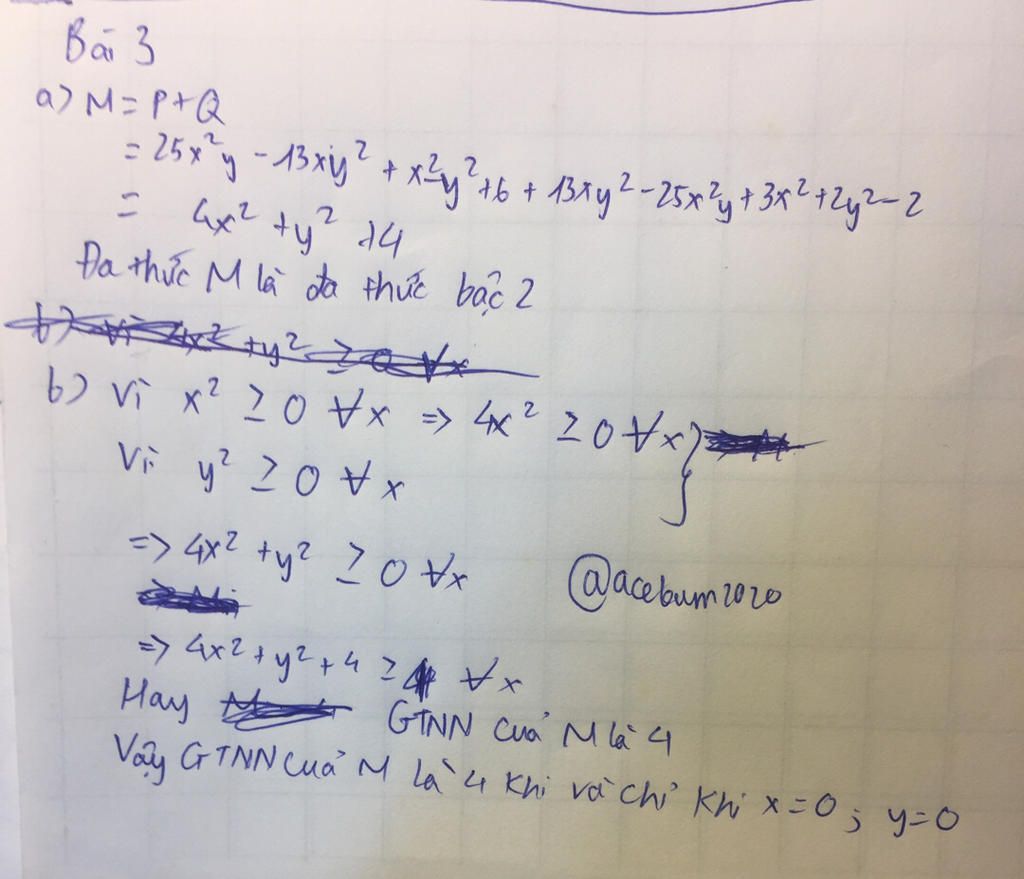 Bài 3
a) M = P + Q
= 25x²y - 13xy² + x² - y² + 6 + 13xy² - 25x²y + 3x² + 2y² - 2
= 4x² + y² + 4
Đa thức M là đa thức bậc 2
b) Vì 4x² + y² ≥ 0 ∀x
b) Vì x² ≥ 0 ∀x => 4x² ≥ 0 ∀x }
Vì y² ≥ 0 ∀x
=> 4x² + y² ≥ 0 ∀x
@acebum2020
=> 4x² + y² + 4 ≥ 4 ∀x
Hay GTNN của M là 4
Vậy GTNN của M là 4 khi và chỉ khi x = 0; y = 0